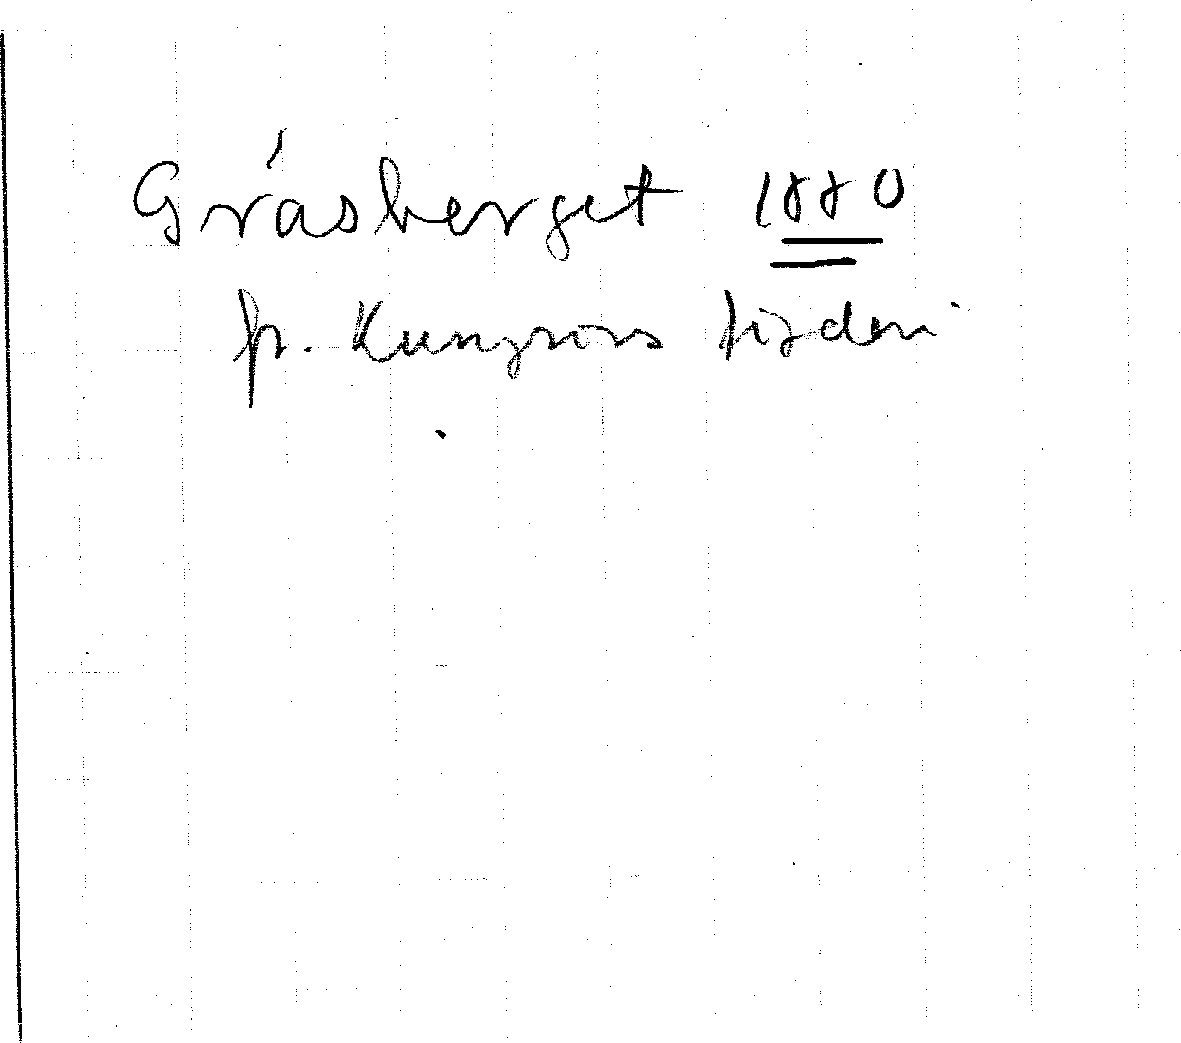 Gråsberget 1880
fr. Kungsörs fjrden